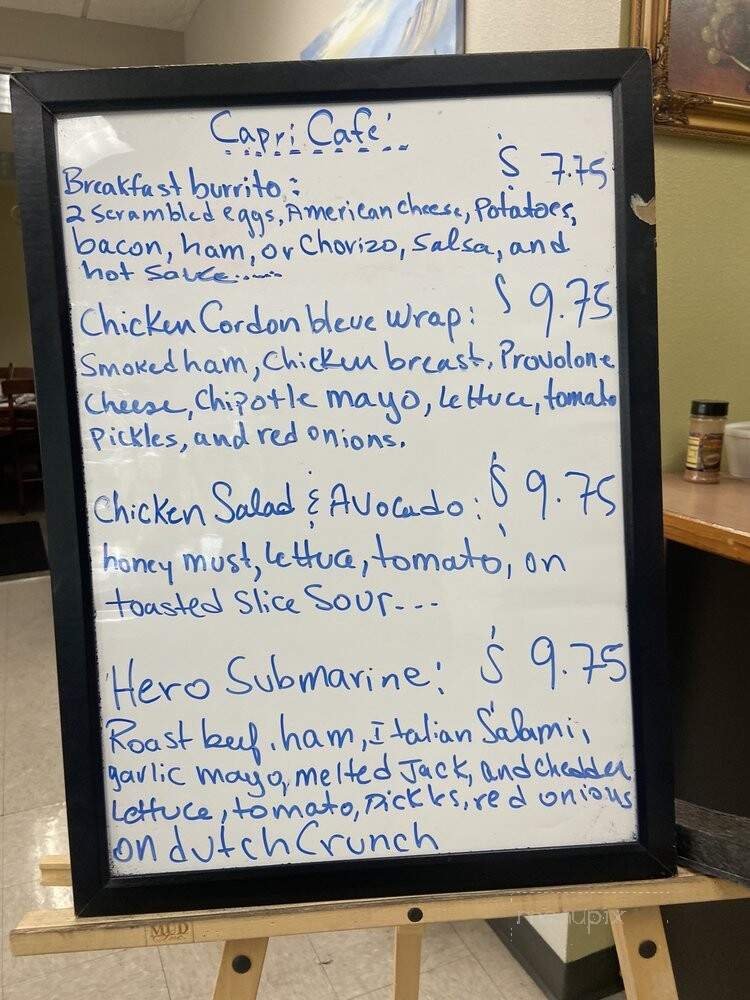 Capri Cafe'
$ 7.75
Breakfast burrito:
2 scrambled eggs, American cheese, Potatoes,
bacon, ham, or Chorizo, Salsa, and
hot sauce.....
Chicken Cordon bleue wrap: $ 9.75
Smoked ham, Chicken breast, Provolone
Cheese, Chipotle mayo, Lettuce, tomato
Pickles, and red onions.
Chicken Salad & Avocado: $ 9.75
honey must, Lettuce, tomato, on
toasted slice Sour---
Hero Submarine: $ 9.75
Roast beef, ham, Italian Salami,
garlic mayo, melted Jack, and chedder
Lettuce, tomato, Pickles, red onions
on dutch Crunch
MUD
menupix